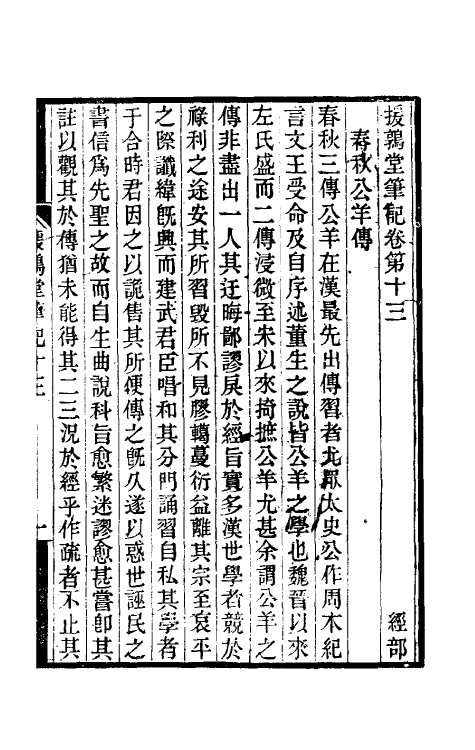 援鶉堂筆記卷第十三　經部
春秋公羊傳
春秋三傳公羊在漢最先出傳習者尤眾太史公作周本紀
言文王受命及自序述董生之說皆公羊之學也魏晉以來
左氏盛而二傳浸微至宋以來掎摭公羊尤甚余謂公羊之
傳非盡出一人其迂晦鄙謬戾於經旨實多漢世學者競於
祿利之途安其所習毀所不見膠轕蔓衍益離其宗至哀平
之際讖緯旣興而建武君臣唱和其分門誦習自私其學者
于合時君因之以詭售其所傳之旣久遂以惑世誣民之
書信爲先聖之故而自生曲說科旨愈繁迷謬愈甚嘗卽其
註以觀其於傳猶未能得其二三況於經乎作疏者不止其
援鶉堂筆記十三　一